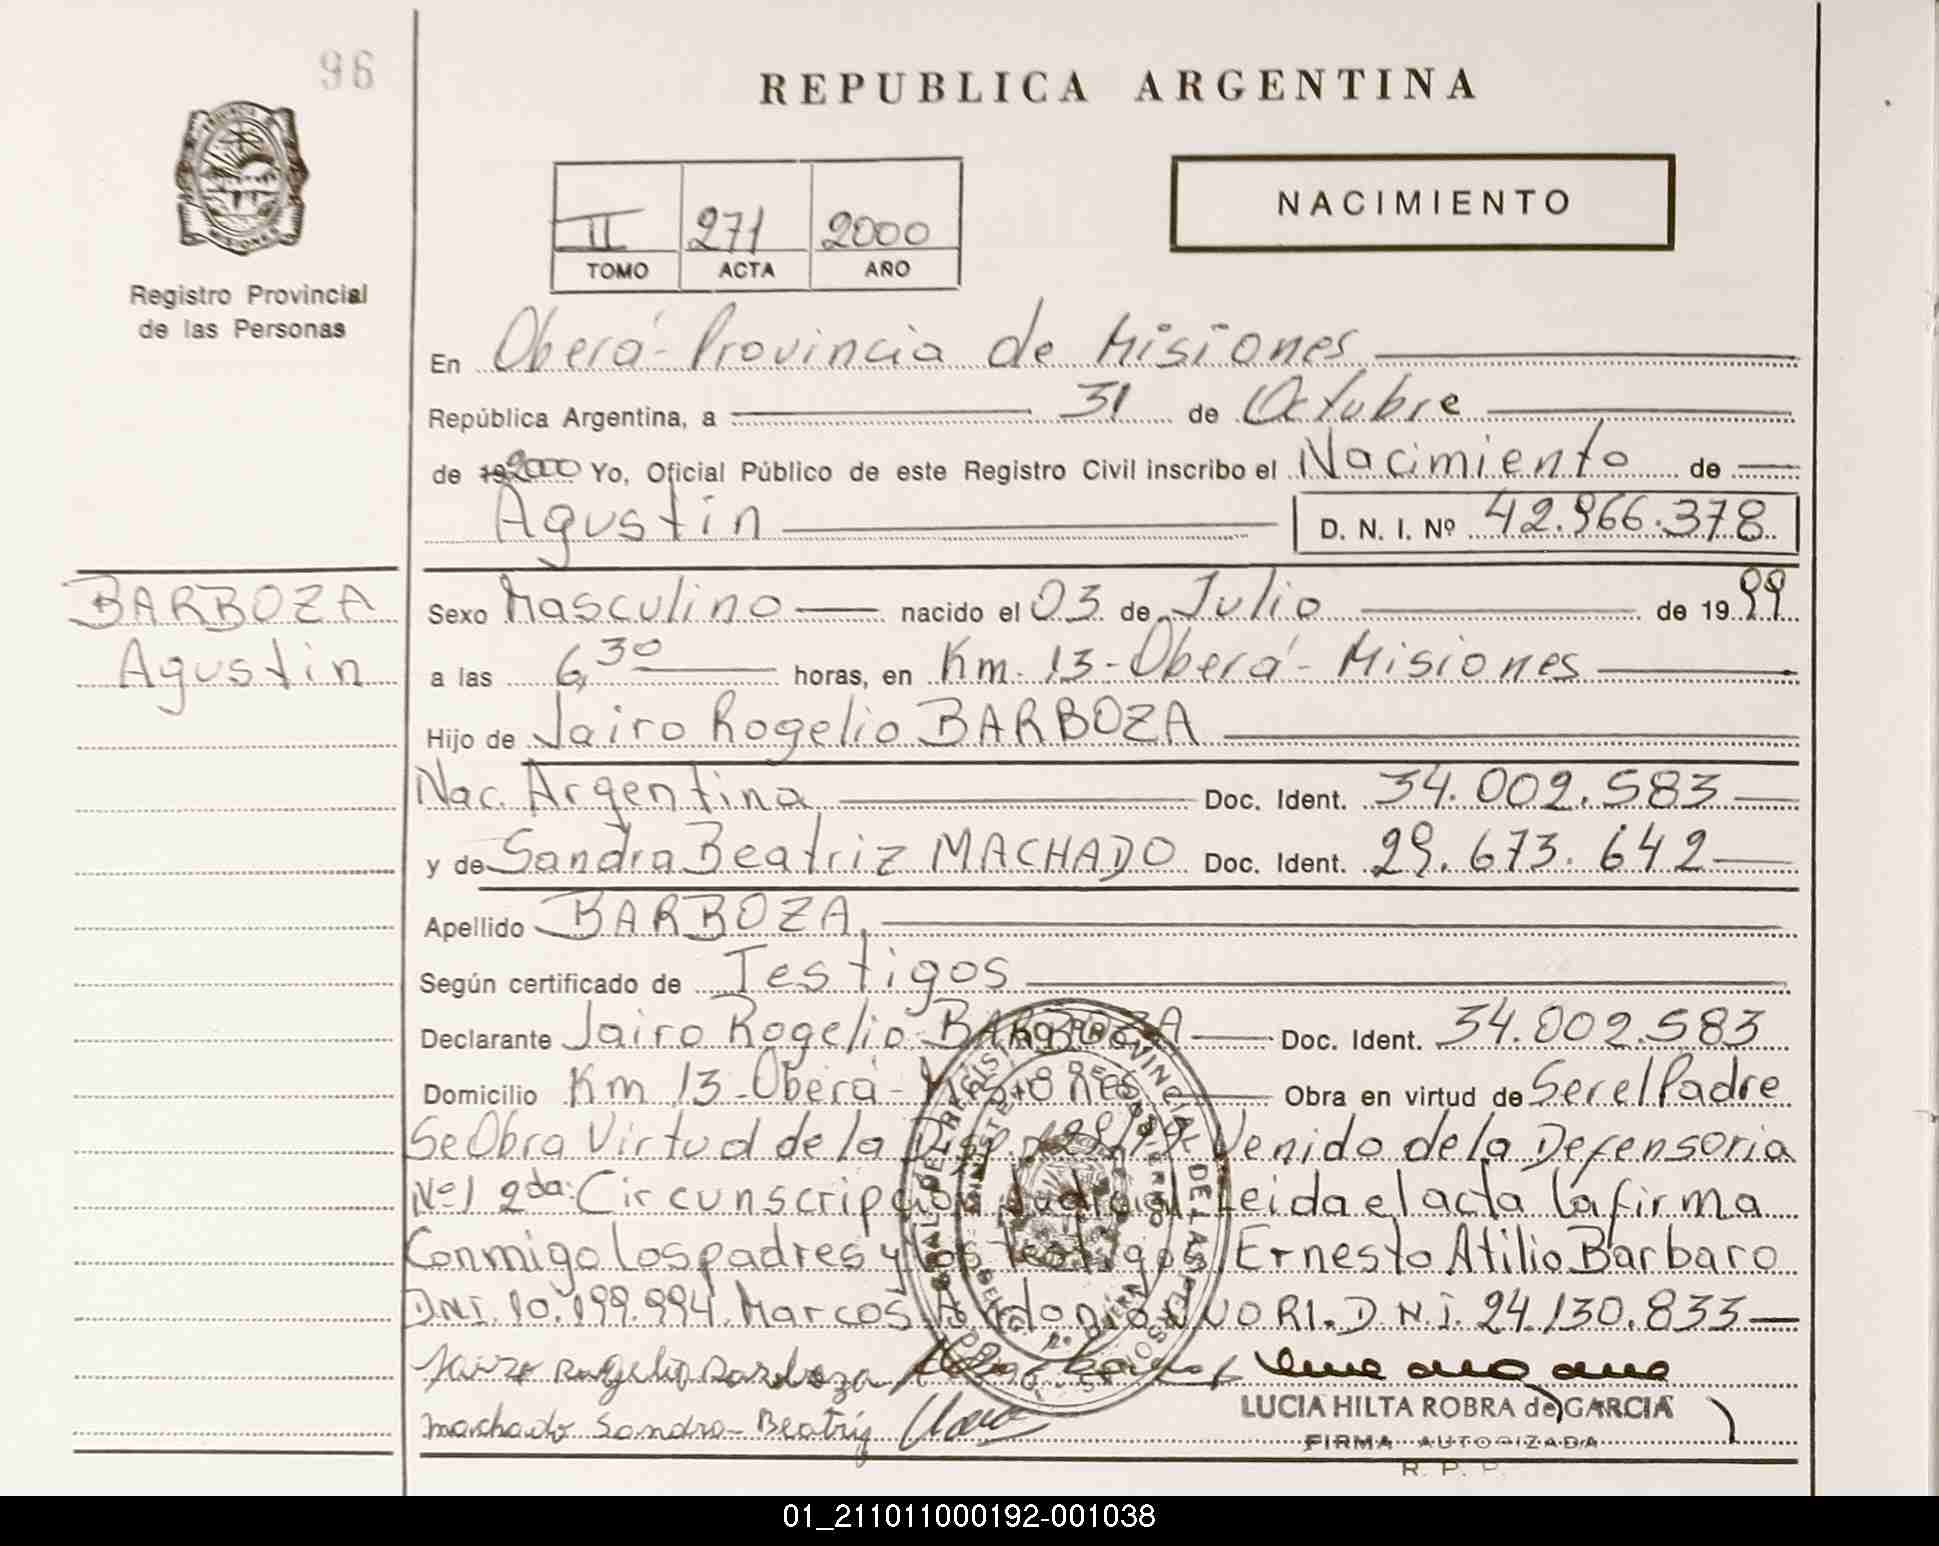 96
REPUBLICA ARGENTINA
II 271 2000
TOMO ACTA AÑO
NACIMIENTO
Registro Provincial
de las Personas
En Oberá - Provincia de Misiones
República Argentina, a 31 de Octubre
de 19 2000 Yo, Oficial Público de este Registro Civil inscribo el Nacimiento de
Agustin D. N. I. Nº 42.966.378
BARBOZA
Agustin
Sexo Masculino nacido el 03 de Julio de 1999
a las 6,30 horas, en Km. 13 - Oberá - Misiones
Hijo de Jairo Rogelio BARBOZA
Nac. Argentina Doc. Ident. 34.002.583
y de Sandra Beatriz MACHADO Doc. Ident. 29.673.642
Apellido BARBOZA
Según certificado de Testigos
Declarante Jairo Rogelio BARBOZA Doc. Ident. 34.002.583
Domicilio Km 13 - Oberá - Misiones Obra en virtud de Ser el Padre
Se Obra Virtud de la Disp. Venido de la Defensoria
Nº 1 2da: Circunscripción Judicial Leida el acta la firma
Conmigo los padres y los testigos Ernesto Atilio Barbaro
DNI. 10.199.994. Marcos NORI. D.N.I. 24.130.833
Jairo Rogelio Barboza
machado Sandra-Beatriz
LUCIA HILTA ROBRA de GARCIA
FIRMA AUTORIZADA
R. P. P.
01_211011000192-001038